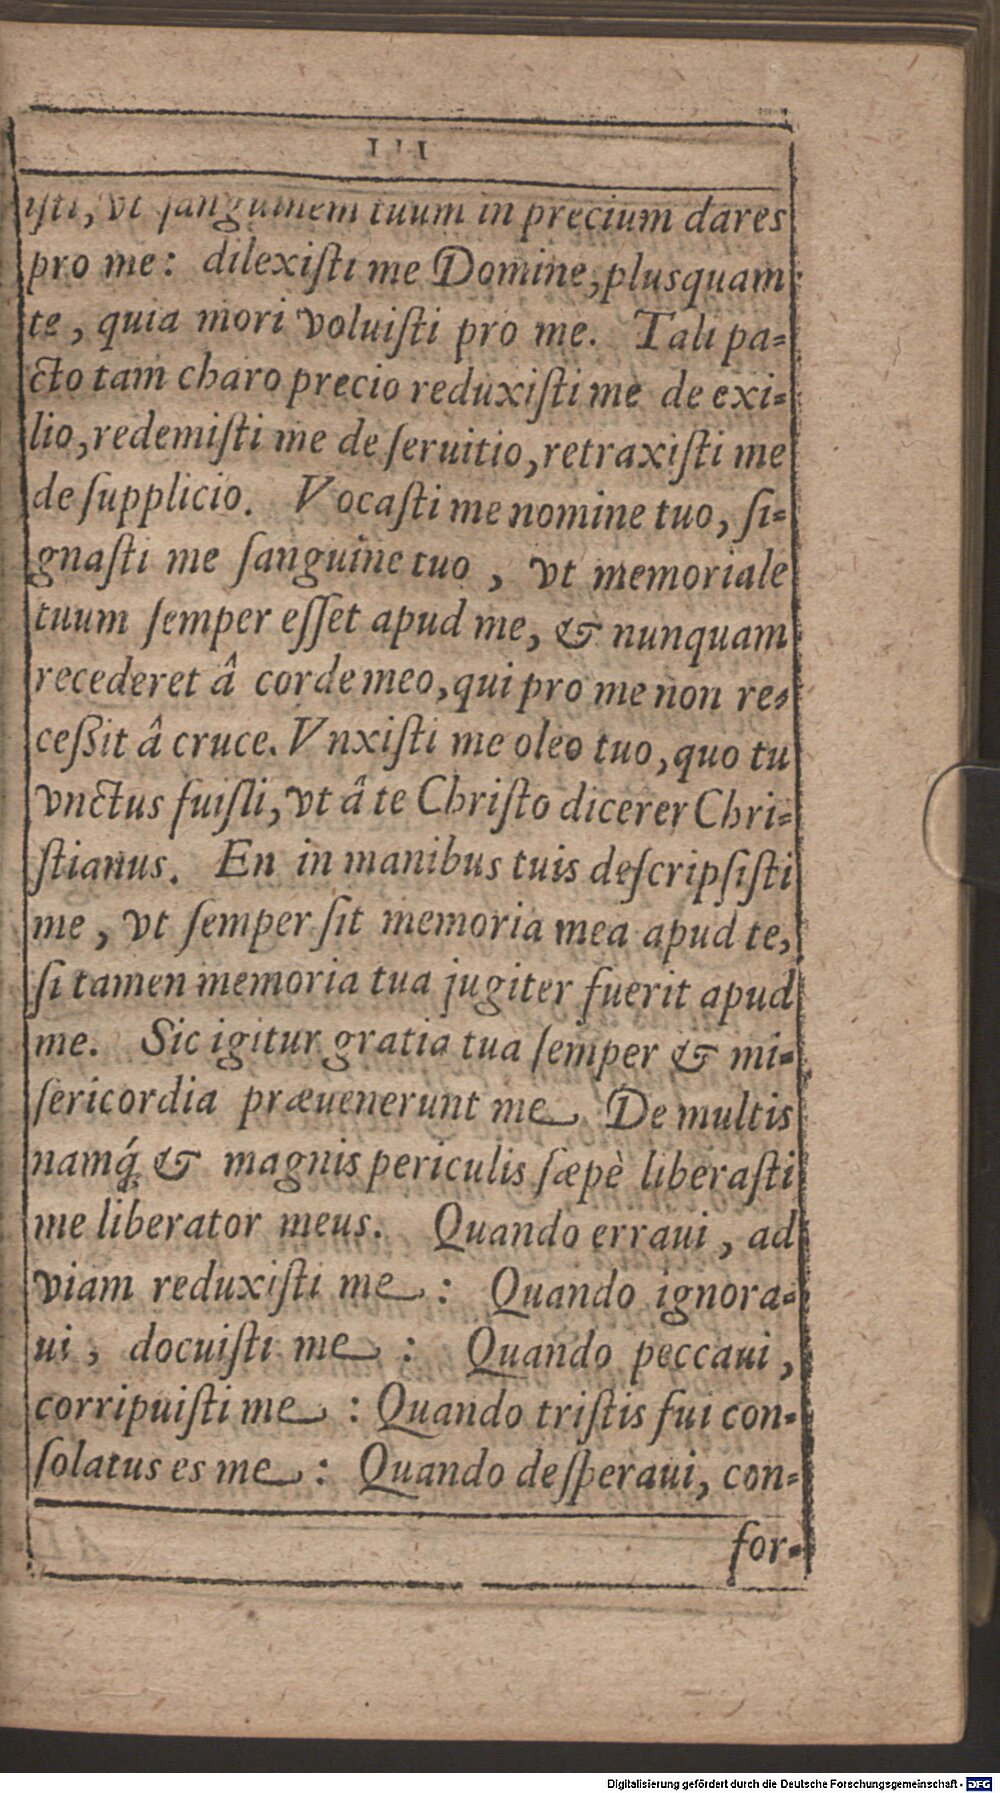 111
iſti, vt ſanguinem tuum in precium dares
pro me: dilexiſti me Domine, plusquam
te, quia mori voluiſti pro me. Tali pa-
cto tam charo precio reduxiſti me de exi-
lio, redemiſti me de ſeruitio, retraxiſti me
de ſupplicio. Vocaſti me nomine tuo, ſi-
gnaſti me ſanguine tuo, vt memoriale
tuum ſemper eſſet apud me, & nunquam
recederet â corde meo, qui pro me non re-
ceßit â cruce. Vnxiſti me oleo tuo, quo tu
vnctus fuiſti, vt â te Chriſto dicerer Chri-
ſtianus. En in manibus tuis deſcripſiſti
me, vt ſemper ſit memoria mea apud te,
ſi tamen memoria tua jugiter fuerit apud
me. Sic igitur gratia tua ſemper & mi-
ſericordia præuenerunt me. De multis
namq́; & magnis periculis ſæpè liberaſti
me liberator meus. Quando erraui, ad
viam reduxiſti me: Quando ignora-
ui, docuiſti me: Quando peccaui,
corripuiſti me: Quando triſtis fui con-
ſolatus es me: Quando deſperaui, con-
for-
Digitalisierung gefördert durch die Deutsche Forschungsgemeinschaft - DFG